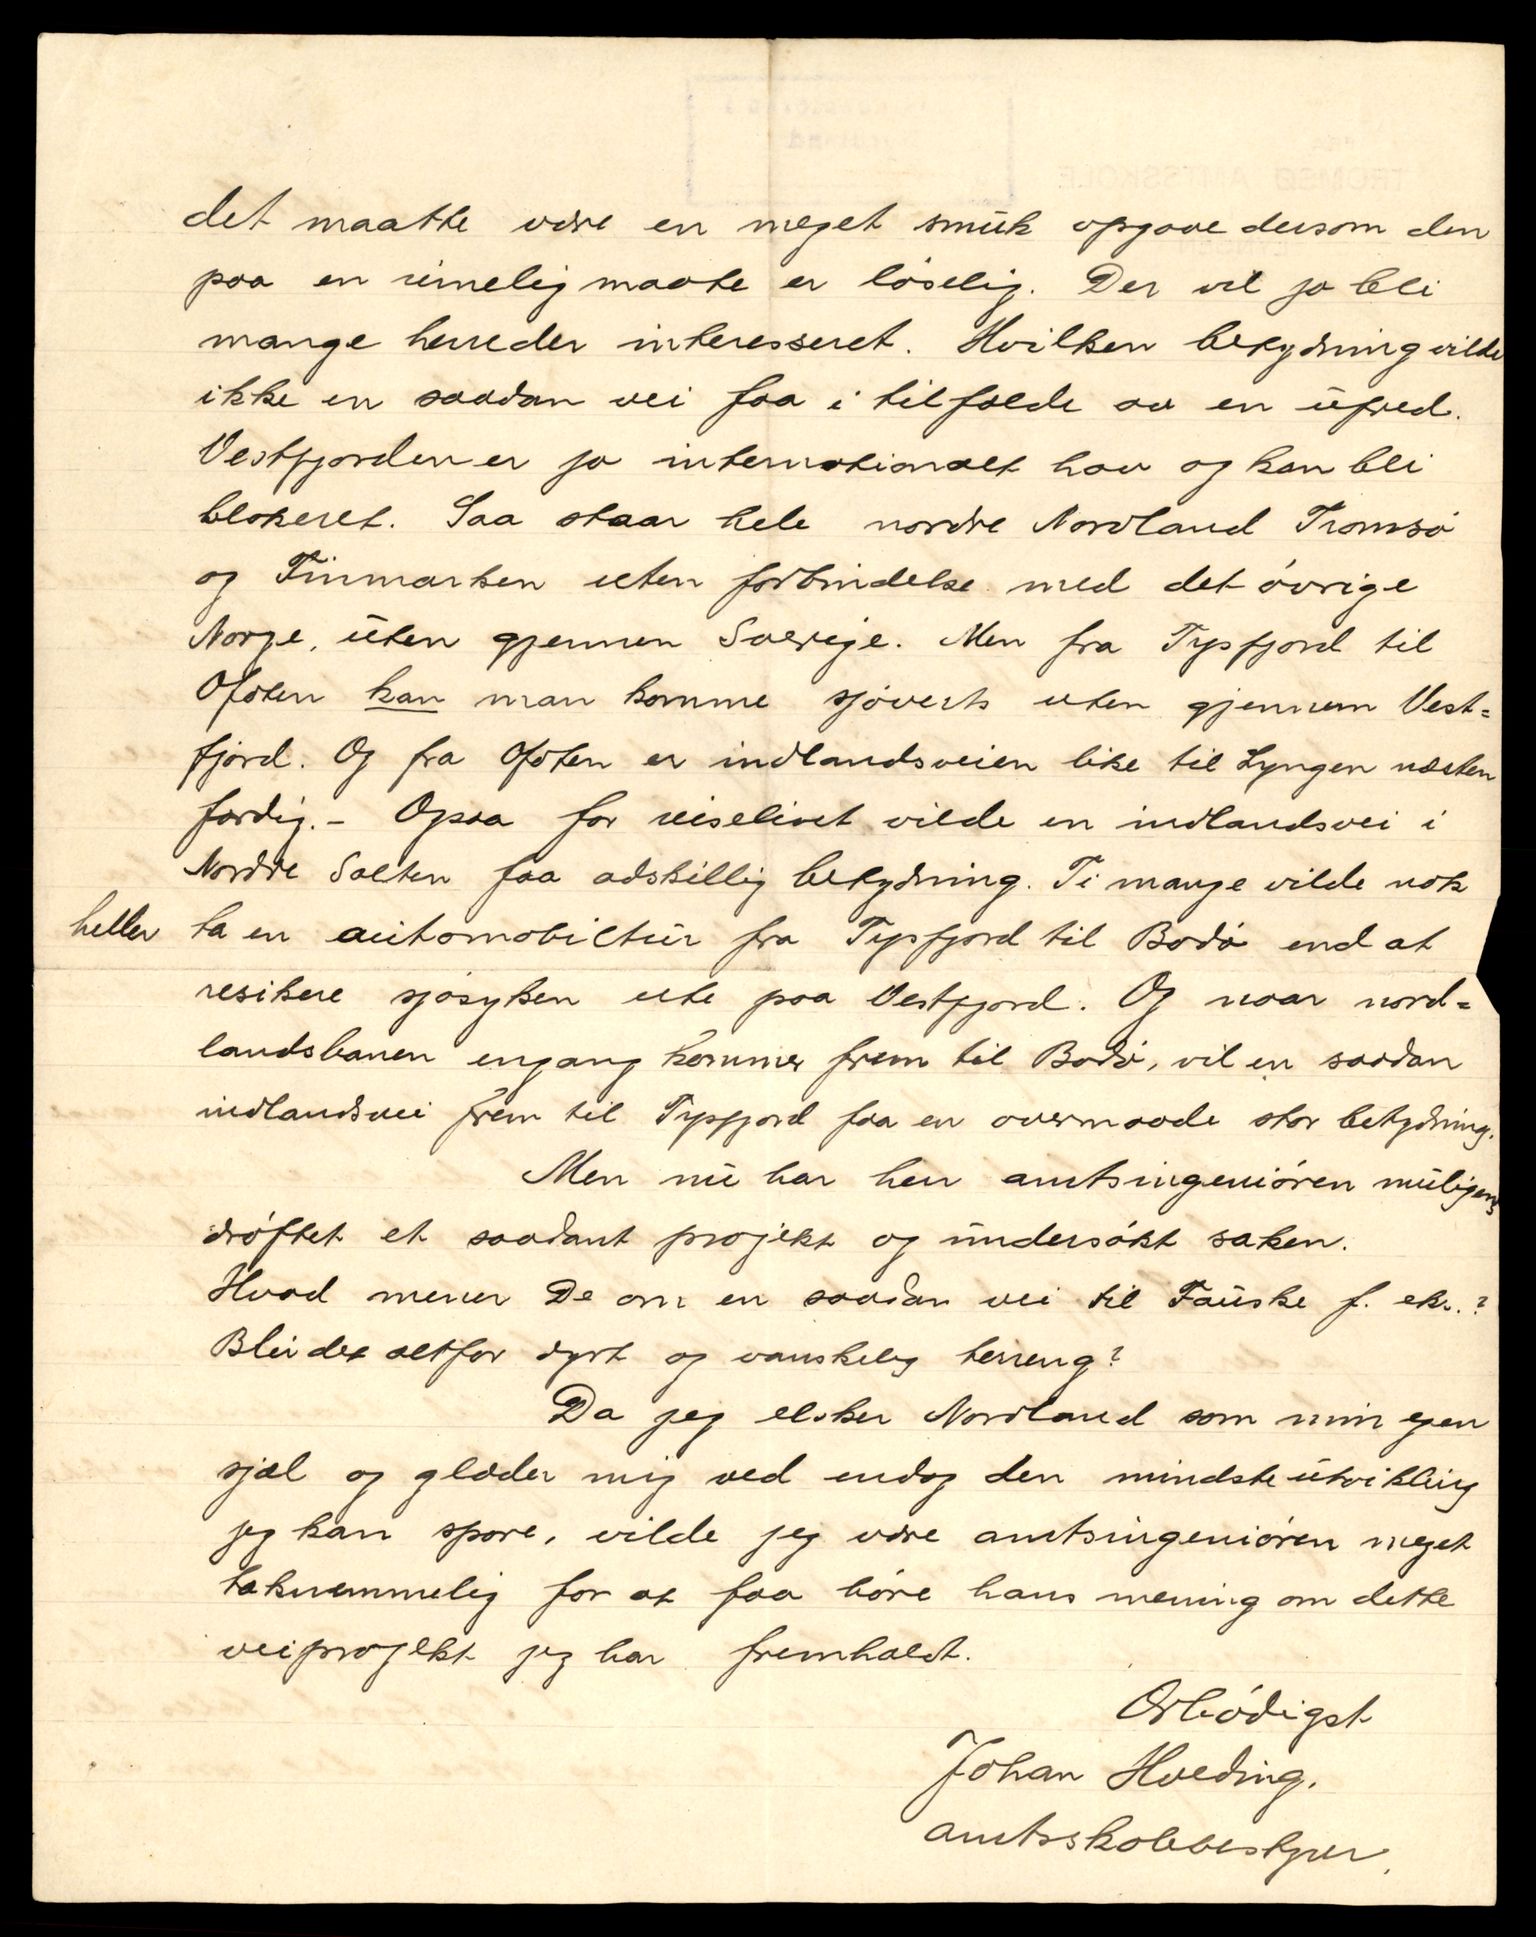 det maatte være en meget smuk opgave dersom den
paa en rimelig maate er løselig. Der vil jo bli
mange herreder interesseret. Hvilken betydning vilde
ikke en saadan vei faa i tilfælde av en ufred.
Vestfjorden er jo internationalt hav og kan bli
blokeret. Saa staar hele nordre Nordland Tromsø
og Finmarken uten forbindelse med det øvrige
Norge, uten gjennem Sverige. Men fra Tysfjord til
Ofoten kan man komme sjøverts uten gjennem Vest=
fjord. Og fra Ofoten er indlandsveien like til Lyngen næsten
færdig. - Ogsaa for reiselivet vilde en indlandsvei i
Nordre Salten faa adskillig betydning. Ti mange vilde nok
heller ta en automobiltur fra Tysfjord til Bodø end at
resikere sjøsyken ute paa Vestfjord. Og naar nord=
landsbanen engang kommer frem til Bodø, vil en saadan
indlandsvei frem til Tysfjord faa en overmaade stor betydning.
Men nu har herr amtsingeniøren muligens
drøftet et saadant projekt og undersøkt saken.
Hvad mener De om en saadan vei til Fauske f. eks.?
Blir det altfor dyrt og vanskelig terreng?
Da jeg elsker Nordland som min egen
sjæl og glæder mig ved endog den mindste utvikling
jeg kan spore, vilde jeg være amtsingeniøren meget
taknemmelig for at faa høre hans mening om dette
veiprojekt jeg har fremholdt.
Ærbødigst
Johan Hveding.
amtsskolebestyrer.
TROMSØ AMTSSKOLE